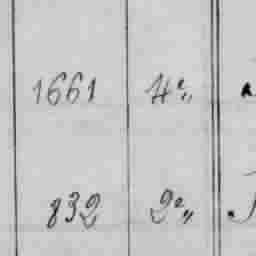 1661 4º„
832 2º„